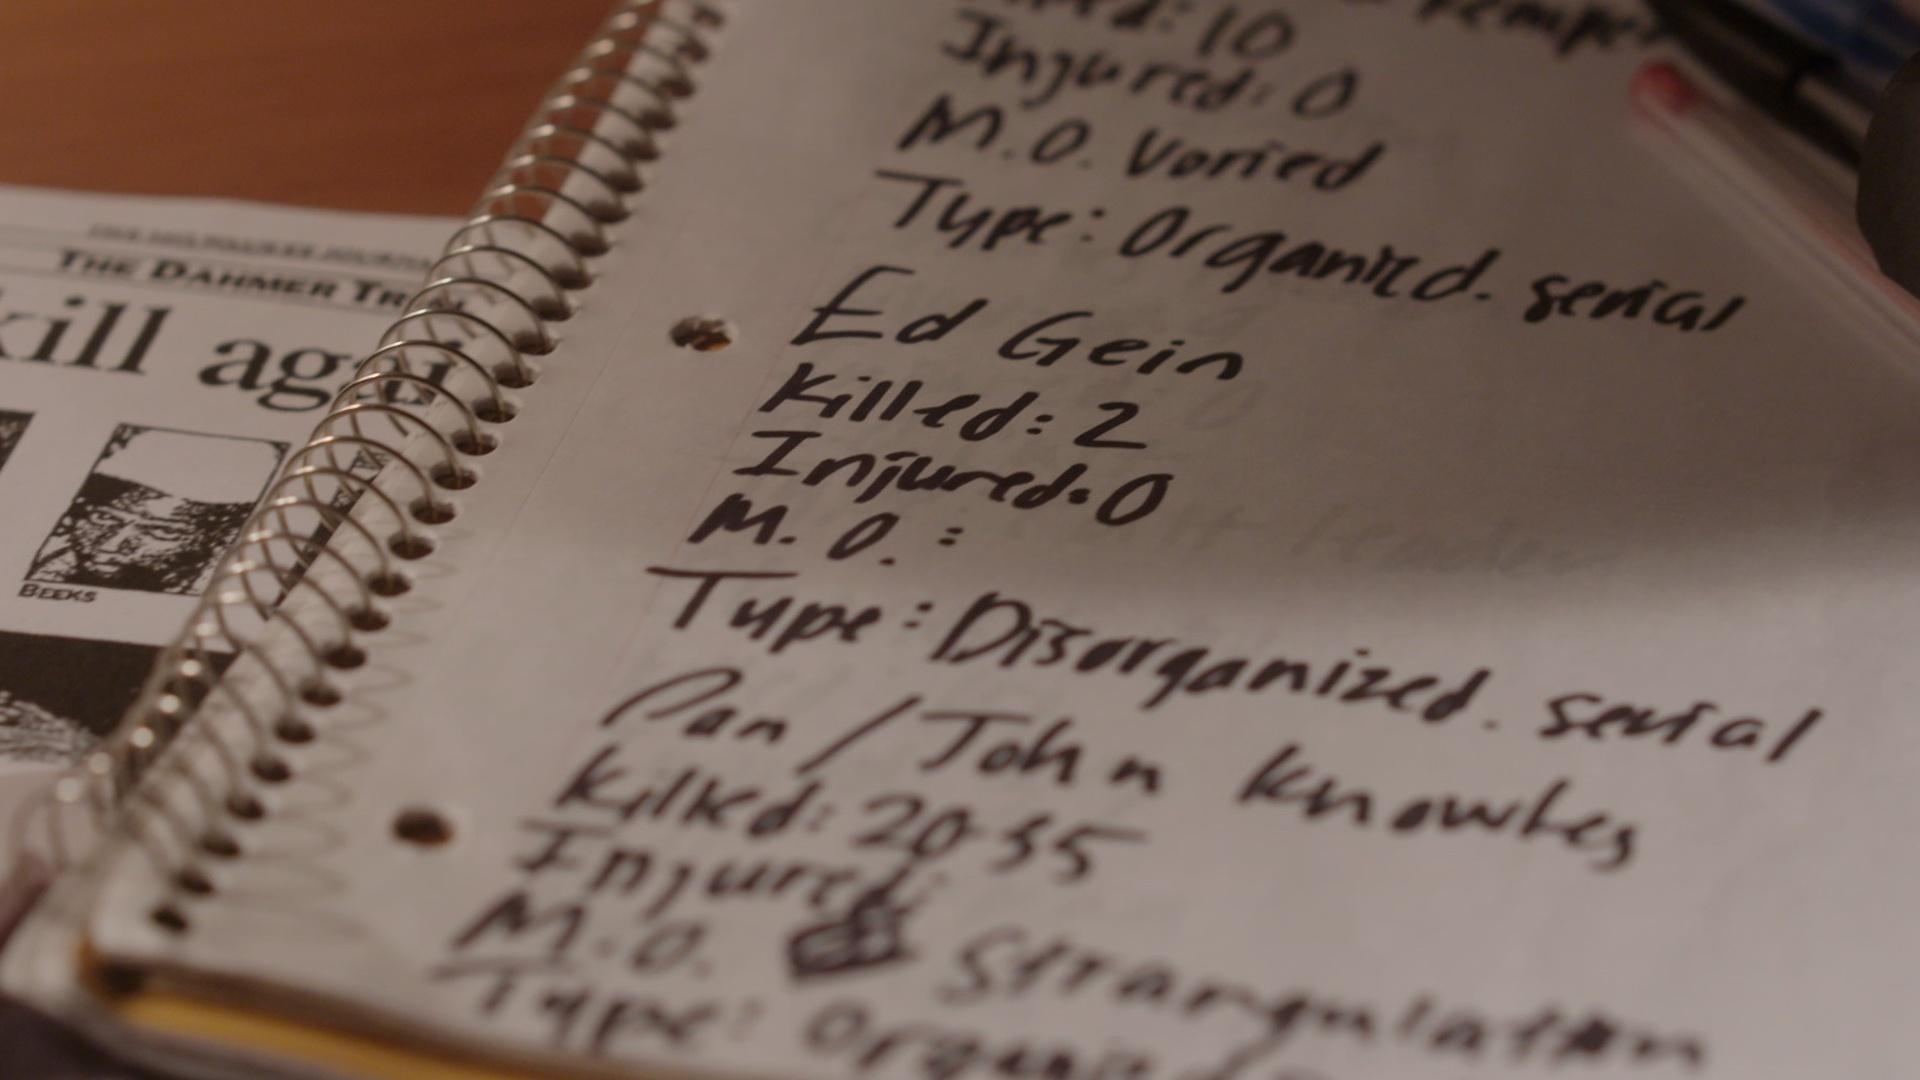 THE DAHMER TRIAL
kill again
BEEKS
Kemper
Killed: 10
Injured: 0
M.O. Varied
Type: Organized. serial
Ed Gein
Killed: 2
Injured: 0
M.O.:
Type: Disorganized. serial
Pan / John Knowles
Killed: 20-35
Injured:
M.O. Strangulation
Type: Organized